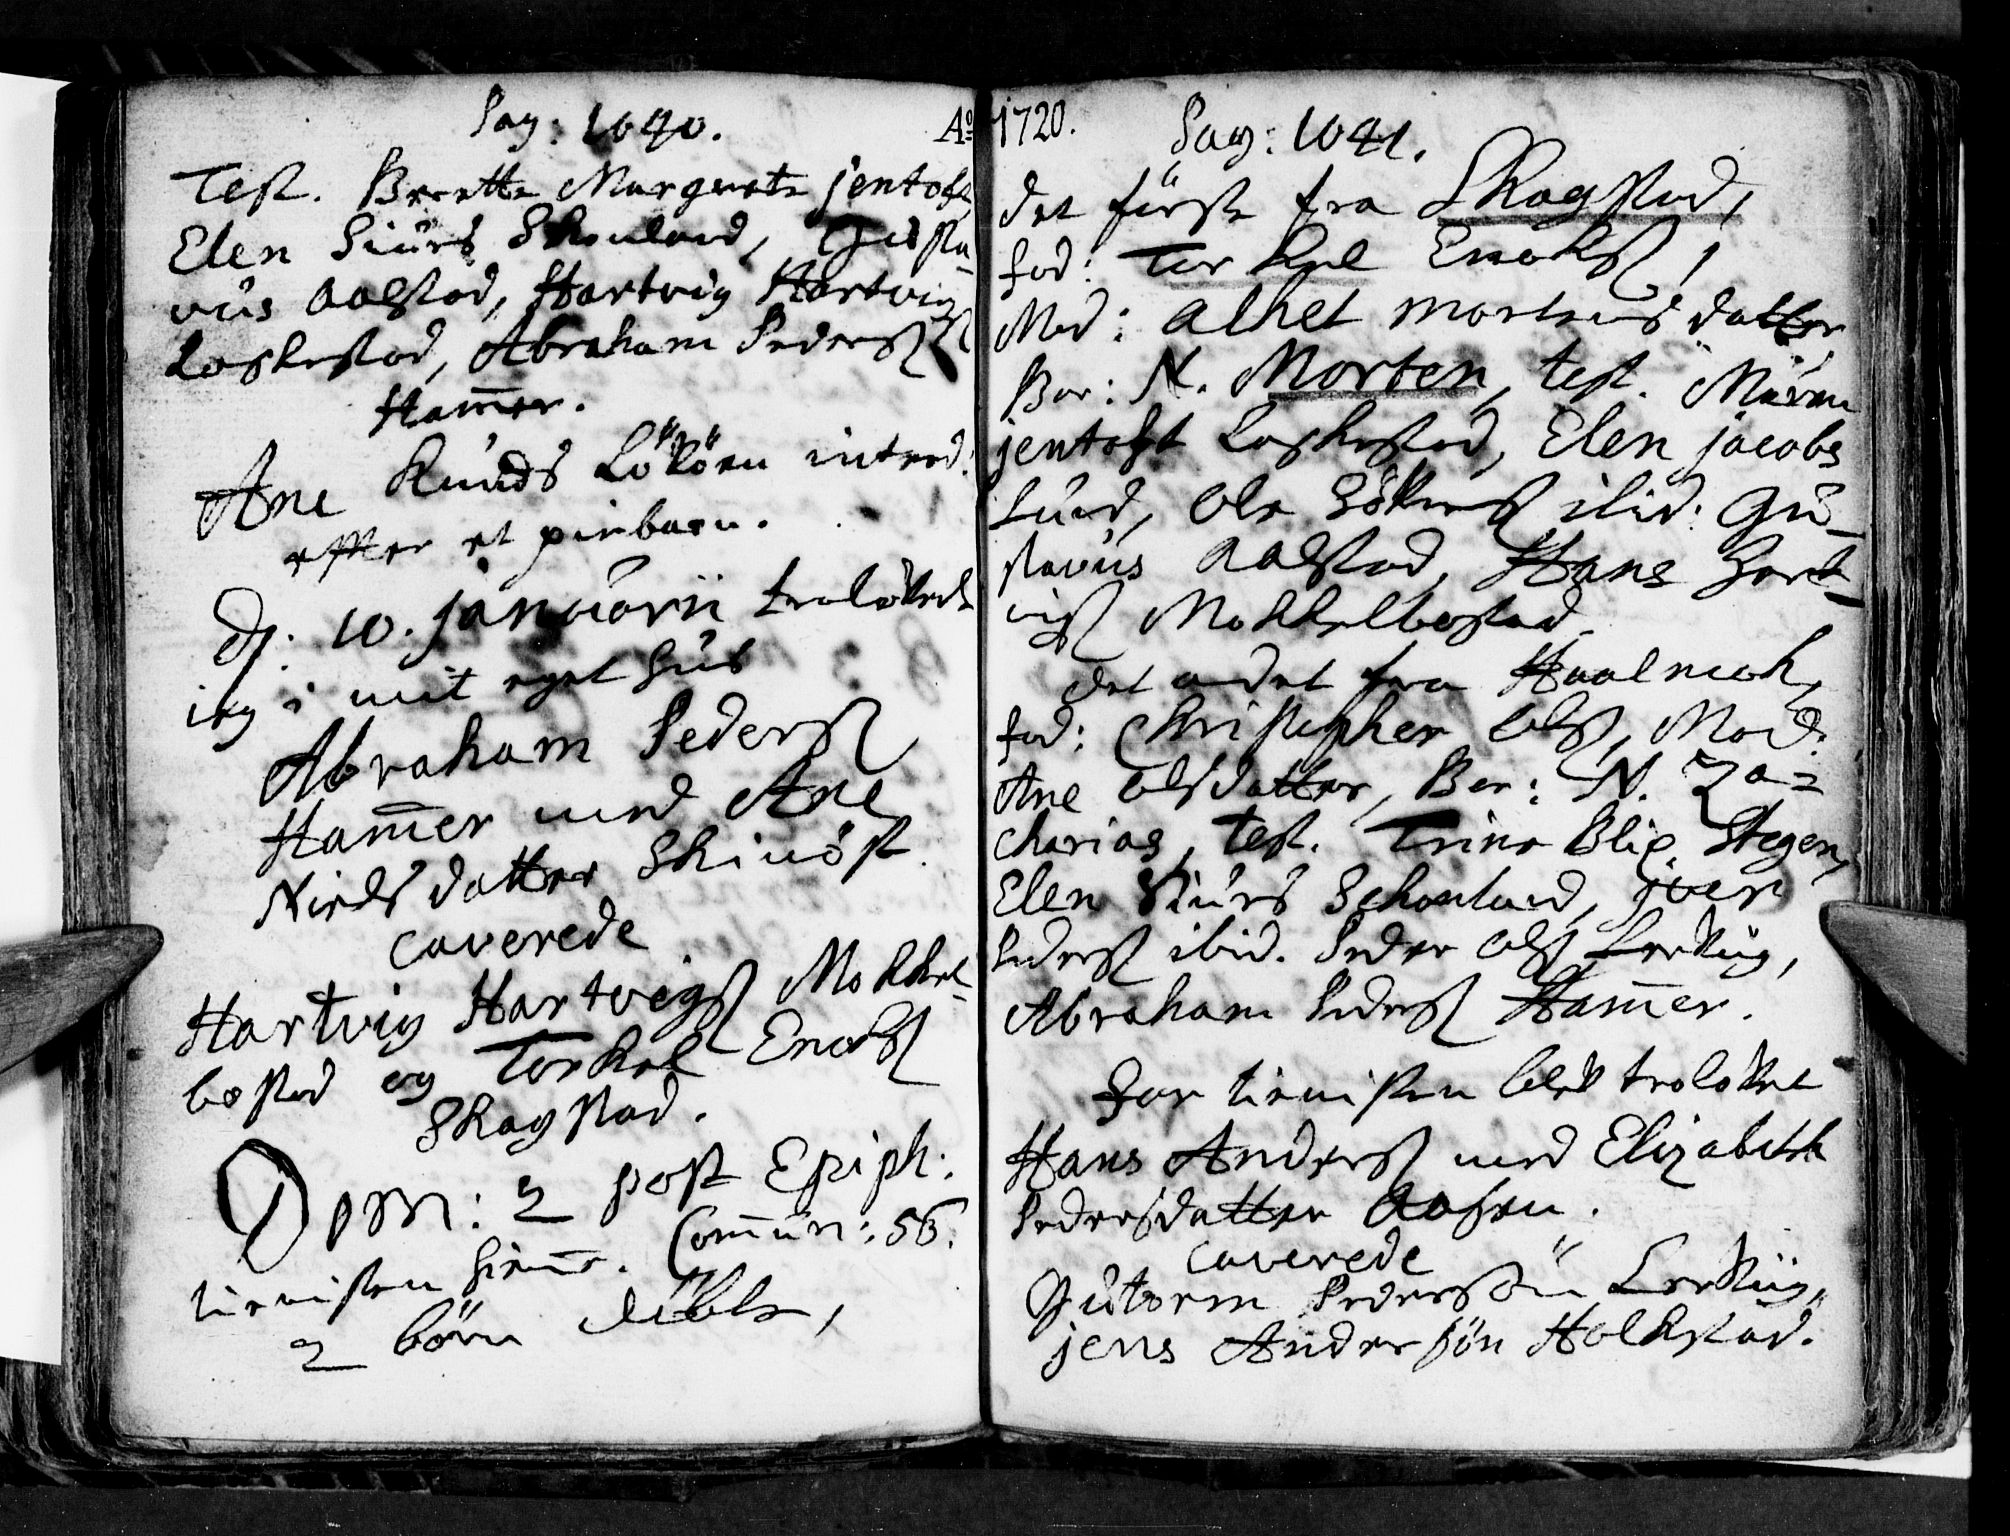 Pag: 1040.
Test. Berette Margrete jentofs
Elen Siurs Skouland, Gusta-
vus Aalstad, Hartvig Hartvigs
Laskestad, Abraham Peders
Ham̄er.
Ane Knuds Løkøen introd:
effter et piebarn.
D: 10. januarii trolovede
ieg i mit eget huus
Abraham Peders
Ham̄er med Ane
Nielsdatter
caverede
Hartvig Hartvigs Mokkel-
bostad og Torkel Enoks
Skagstad.
Dom: 2 post Epiph:
tienisten. Com̄un: 56.
2 børn døbte,
Ao 1720.
Pag: 1041.
det første fra Skagstad,
fad: Torkel Enoks,
Mod: Alhet Mortens datter
Bar: N. Morten, test. Maren
jentoft Laskestad, Elen jacobs
Lund, Ole ibid: Gu-
stavus Aalstad, Hans Hart-
vigs Mokkelbostad
det andet fra Haalmoh,
fad: Christopher Ols, Mod:
Ane Olsdatter, Bar: N. Za-
charias, test. Trine Blix Stegen,
Elen Siurs Schouland, jver
Peders ibid. Peder Ols Lerkiig,
Abraham Peders Ham̄er.
For tienisten blev trolovet
Hans Anders med Elizabeth
Pedersdatter Aasen.
caverede
Gutorm Pedersøn Lerkiig,
jens Andersøn Holkestad.